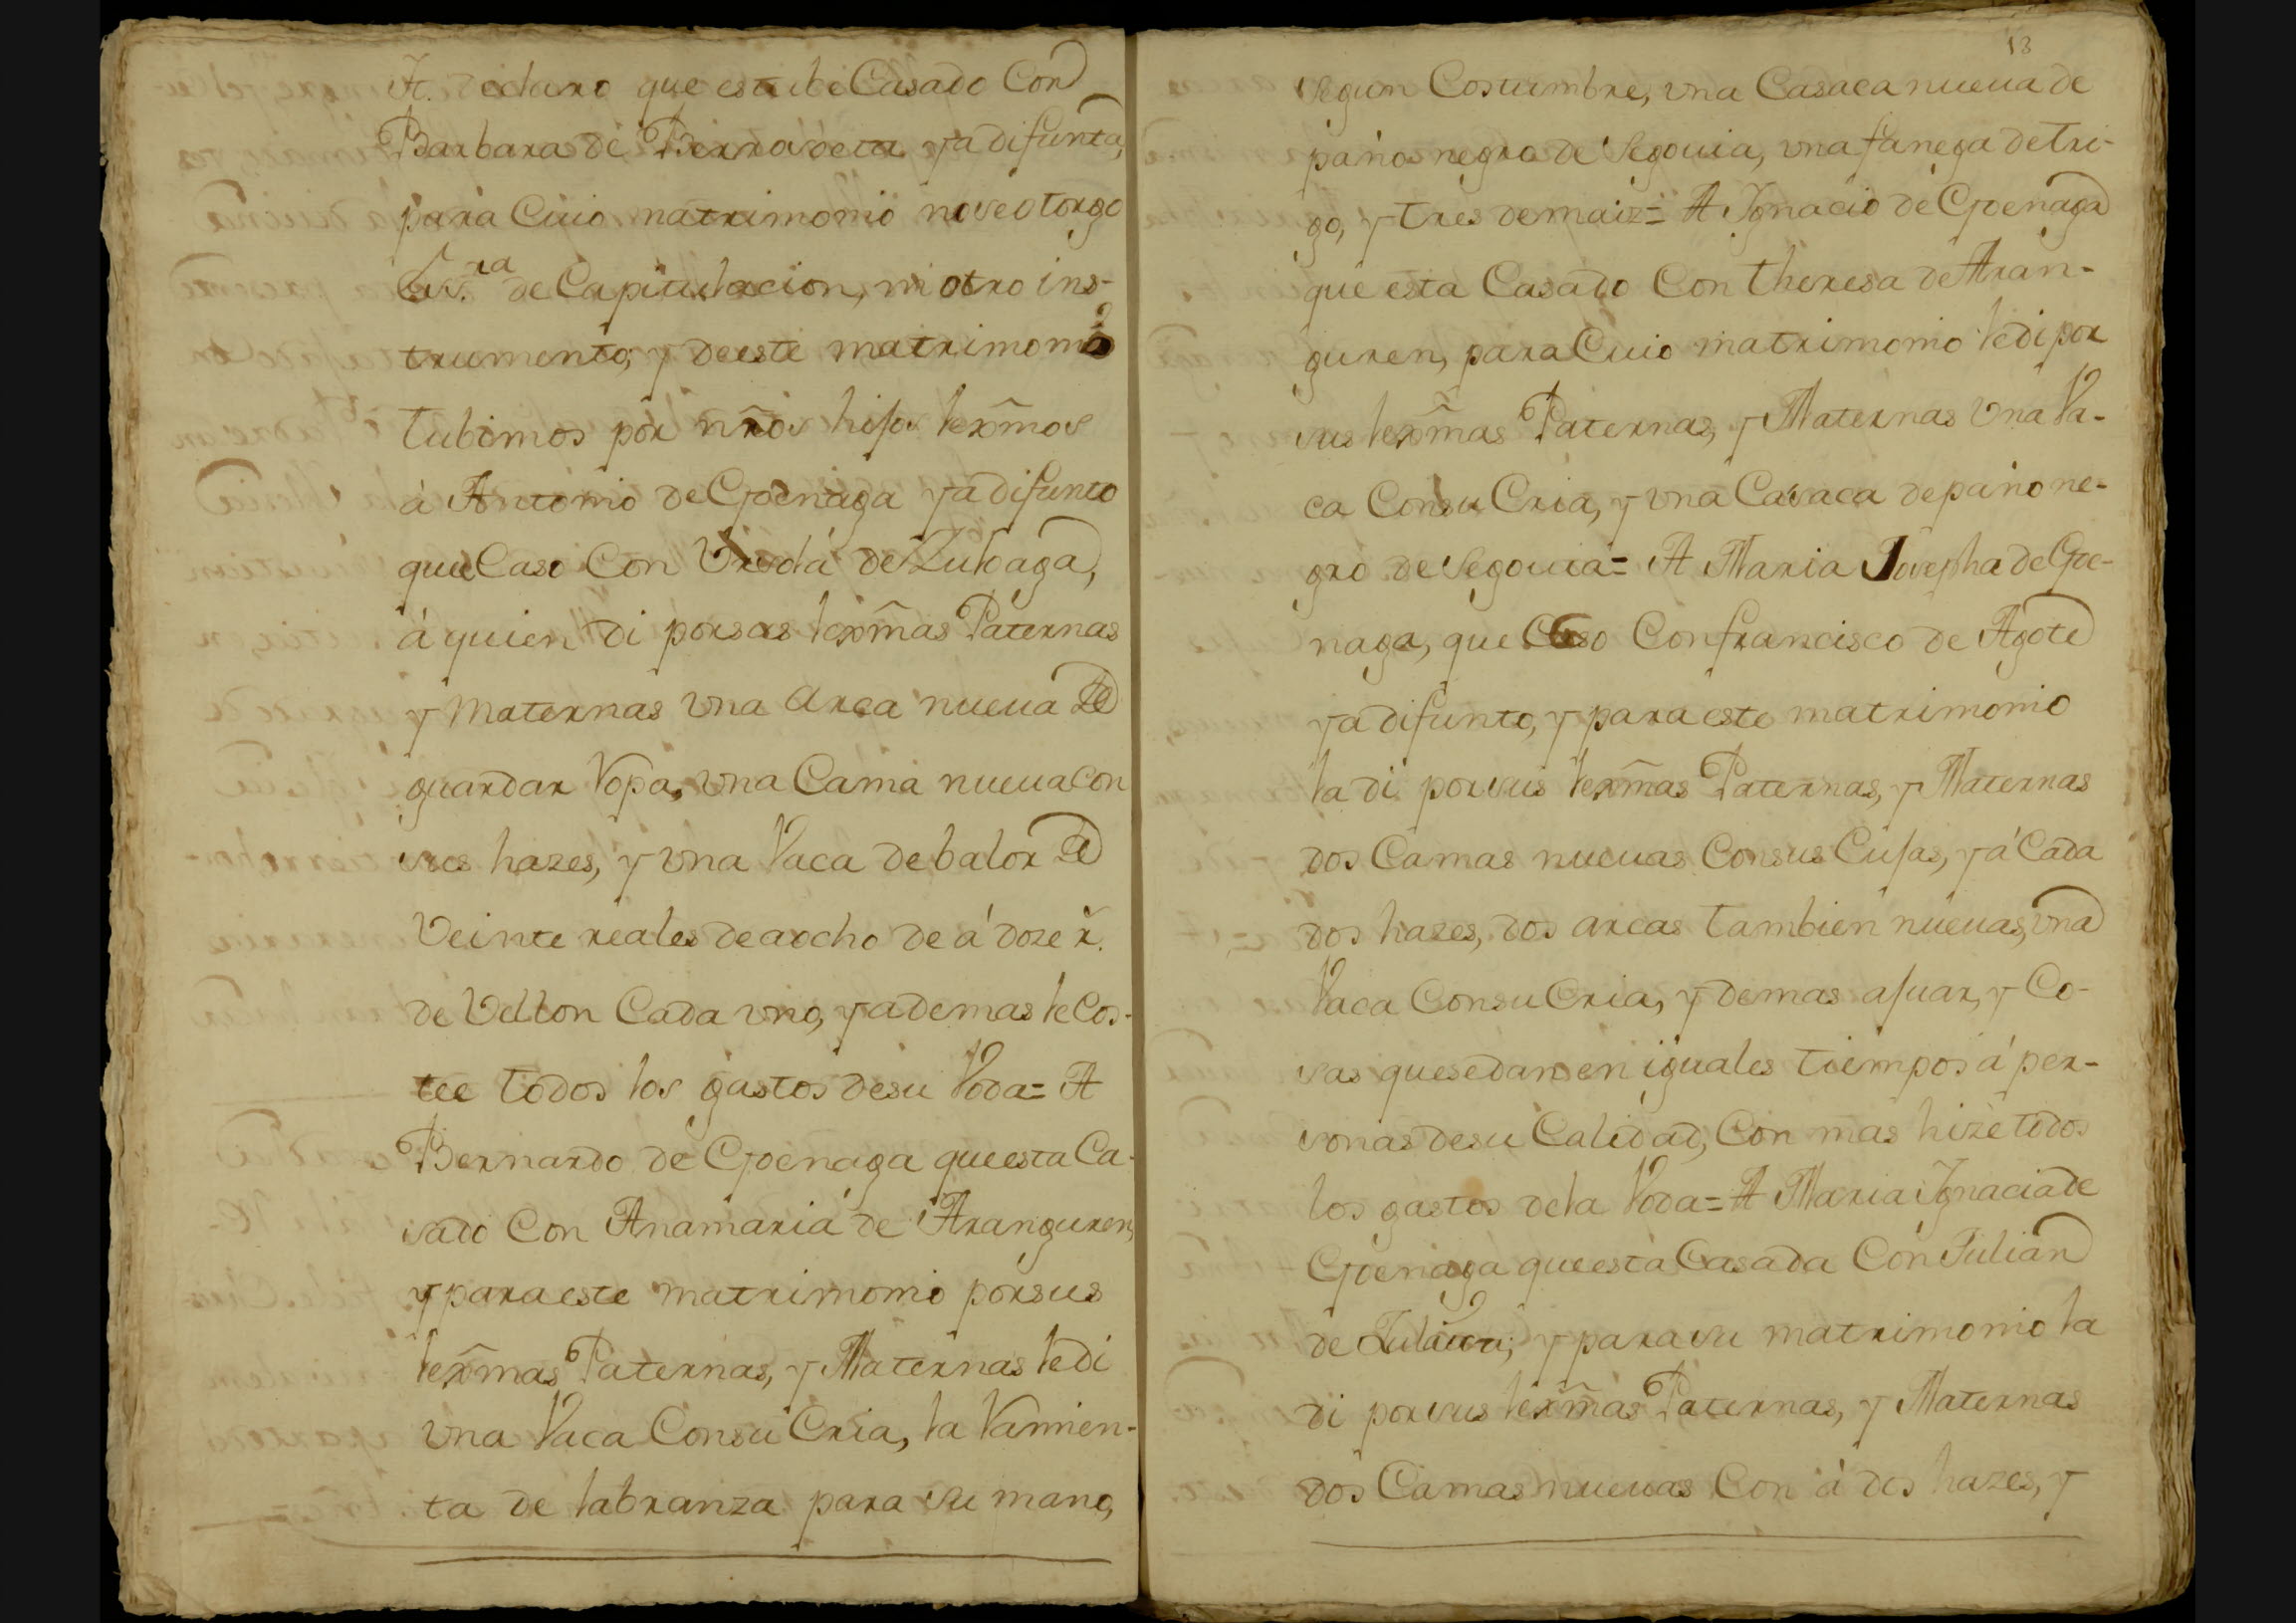 It. declaro que estube Casado Con
Barbara de Berrodeta ya difunta,
para Cuio matrimonio no se otorgo
Scrip.ra de Capitulacion, ni otro ins-
trumento; y de este matrimonio
tubimos por nr̃os hijos lexm̃os
à Antonio de Goenaga ya difunto
que Caso Con Ursola de Zuloaga,
á quien di por sus lexm̃as Paternas
y Maternas una arca nueua de
guardar Ropa, una Cama nueua con
sus hazes, y una Vaca de balor de
Veinte reales de aocho de á doze r̃.
de Vellon Cada uno, y ademas le Cos-
tee todos los gastos de su Voda= A
Bernardo de Goenaga que esta Ca-
sado Con Anamaria de Aranguren,
y para este matrimonio por sus
lexm̃as Paternas, y Maternas le di
una Vaca Con su Cria, la Ramien-
ta de labranza para su mano,
18
segun Costumbre, una Casaca nueua de
paño negro de Segouia, una fanega de tri-
go, y tres de maiz= A Ygnacio de Goenaga
que esta Casado Con theresa de Aran-
guren, para Cuio matrimonio le di por
sus lexm̃as Paternas, y Maternas una Va-
ca Con su Cria, y una Casaca de paño ne-
gro de Segouia= A Maria Josepha de Goe-
naga, que Caso Con francisco de Agote
ya difunto, y para este matrimonio
la di por sus lexm̃as Paternas, y Maternas
dos Camas nueuas Con sus Cujas, y á Cada
dos hazes, dos arcas tambien nueuas, una
Vaca Con su Cria, y demas ajuar, y Co-
sas que se dan en iguales tiempos á per-
sonas de su Calidad, Con mas hize todos
los gastos de la Voda= A Maria Ygnacia de
Goenaga que esta Casada Con Julian
de y para su matrimonio la
di por sus lexm̃as Paternas, y Maternas
dos Camas nueuas Con á dos hazes, y